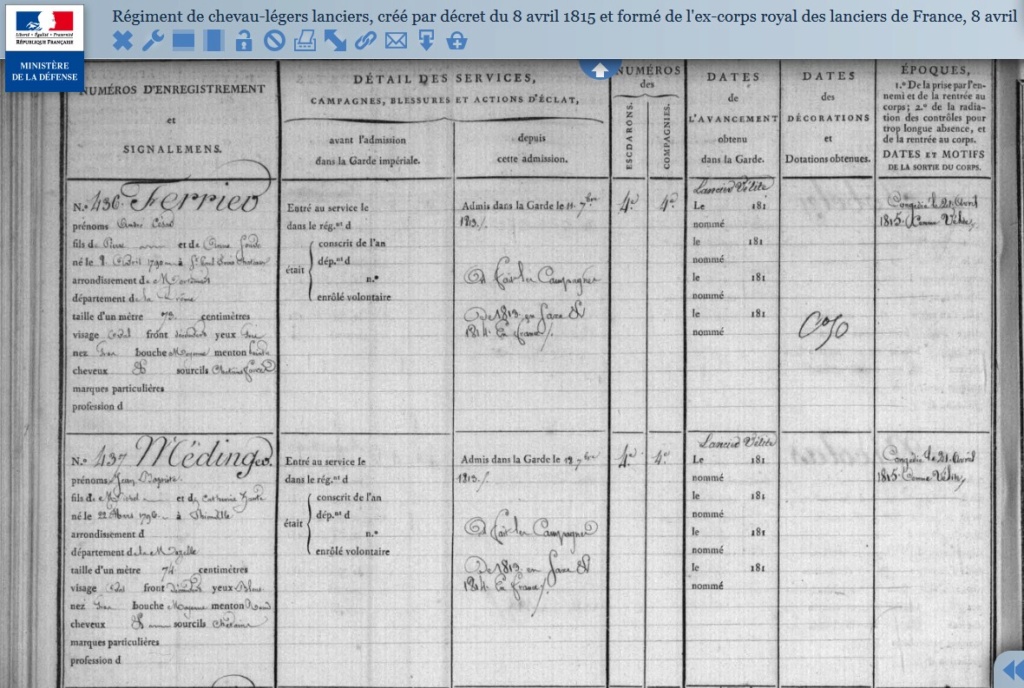 Régiment de chevau-légers lanciers, créé par décret du 8 avril 1815 et formé de l'ex-corps royal des lanciers de France, 8 avril
Liberté • Égalité • Fraternité
RÉPUBLIQUE FRANÇAISE
MINISTÈRE
DE LA DÉFENSE
NUMÉROS D'ENREGISTREMENT
et
SIGNALEMENS.
DÉTAIL DES SERVICES,
CAMPAGNES, BLESSURES ET ACTIONS D'ÉCLAT,
avant l'admission
dans la Garde impériale.
depuis
cette admission.
NUMÉROS
des
ESCDARONS.
COMPAGNIES.
DATES
de
L'AVANCEMENT
obtenu
dans la Garde.
DATES
des
DÉCORATIONS
et
Dotations obtenues.
ÉPOQUES,
1.° De la prise par l'en-
nemi et de la rentrée au
corps; 2.° de la radia-
tion des contrôles pour
trop longue absence, et
de la rentrée au corps.
DATES ET MOTIFS
DE LA SORTIE DU CORPS.
N.° 436 Ferrier
prénoms
fils de Pierre et de
né le à
arrondissement de
département de la Drôme
taille d'un mètre 73 centimètres
visage front yeux
nez bouche Moyenne menton
cheveux sourcils
marques particulières
profession d
Entré au service le
dans le rég.nt d
était
conscrit de l'an
dép.nt d
n.°
enrôlé volontaire
Admis dans la Garde le 11 7bre
1813./.
A fait les Campagnes
De 1813 en Saxe &
1814 En france/.
4e 4e
Lancier Vélite
Le 181
nommé
le 181
nommé
le 181
nommé
le 181
nommé
Congédié le 21 Avril
1815 Comme Vélite/.
N.° 437 Médinger.
prénoms Jean Baptiste
fils de et de Catherine
né le 22 1796 à Thionville
arrondissement d
département de la Mozelle
taille d'un mètre 74 centimètres
visage front yeux Bleus
nez bouche Moyenne menton Rond
cheveux sourcils
marques particulières
profession d
Entré au service le
dans le rég.nt d
était
conscrit de l'an
dép.nt d
n.°
enrôlé volontaire
Admis dans la Garde le 12 7bre
1813./.
A fait les Campagnes
De 1813 en Saxe &
1814 En france/.
4e 4e
Lancier Vélite
Le 181
nommé
le 181
nommé
le 181
nommé
le 181
nommé
Congédié le 21 Avril
1815 Comme Vélite/.